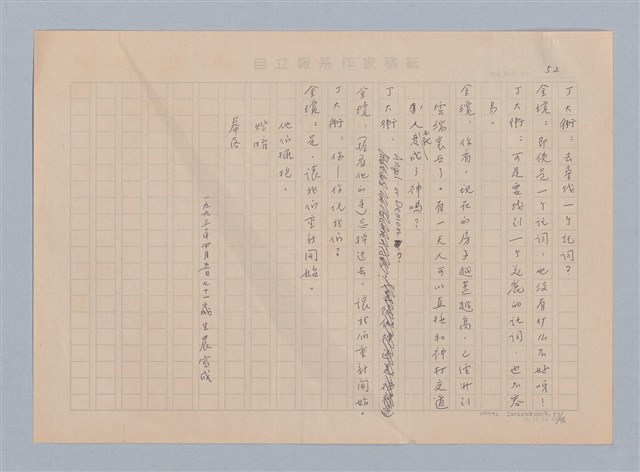 自立報系作家稿紙
52
丁大衛：去尋找一个託詞？
金環：即使是一个託詞，也沒有什么不好呀！
丁大衛：可是要找到一个美麗的託詞，也不容
易。
金環：你看，現在的房子越蓋越高，已經升到
雲端裏去了。有一天人可以直接和神打交道
人變成了神嗎？
丁大衛：Angel or Demon？
金環：（握着他的手）忘掉过去，讓我們重新開始。
丁大衛：你—你說我們？
金環：是，讓我們重新開始。
他們擁抱。
燈暗
幕落
一九九三年四月
生晨寫成